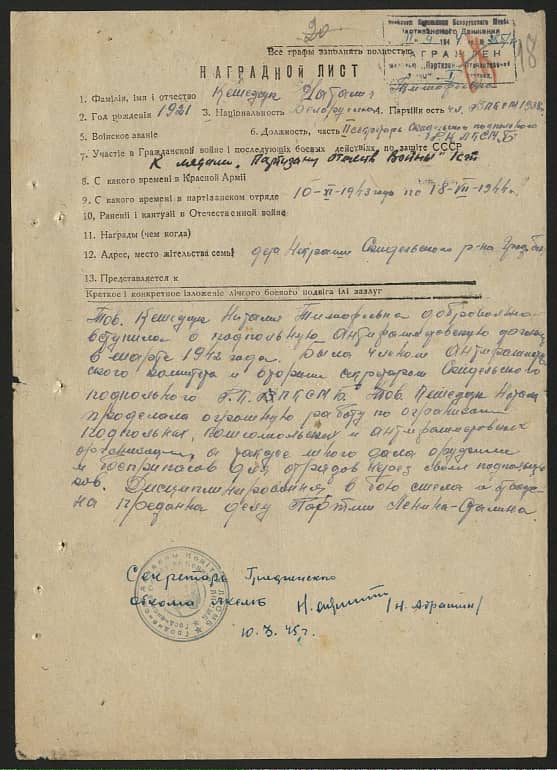 20
18
Все графы заполнять полностью
НАГРАДНОЙ ЛИСТ
1. Фамілія, імя і отчество Кешедчук Наталия Тимофеевна
2. Год рождения 1921 3. Національность белорусска 4. Партійность чл. ВЛКСМ 1938
5. Воинское званіе 6. Должность, часть II секретарь Скидельского подпольного
РК ЛКСМБ
7. Участіе в Гражданской войне і последующих боевых действіях по защіте СССР
К медали „Партизану Отечеств Войны" I ст.
8. С какого времени в Красной Арміі
9. С какого времені в партізанском отряде 10-VI-1943 года по 18-VII-1944 г.
10. Раненіі і кантузіі в Отечественной войне
11. Награды (чем когда)
12. Адрес, место жітельства семьі дер Некраши Скидельского р-на Гродн
13. Представляется к
Краткое і конкретное ізложеніе лічного боевого подвіга ілі заслуг
Тов. Кешедчук Наталия Тимофеевна добровольно
вступила в подпольную антифашистскую
в марте 1942 года. Была членом антифашист-
ского комитета и вторым секретарем Скидельского
подпольного Р.К. ЛКСМБ. Тов. Кешедчук Наталия
проделала огромную работу по организации
подпольных, комсомольских и антифашистских
организаций, а также много дала оружия
и боеприпасов для отрядов через своих подпольщи-
ков. Дисциплинированная, в бою смела и
на предана делу Партии Ленина-Сталина.
Секретарь Гродненского
обкома лксмб /Н. Аврашин/
10. 3. 45 г.